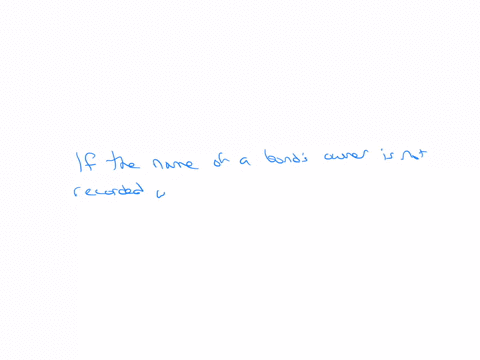 If the name of a bond's owner is not
recorded,